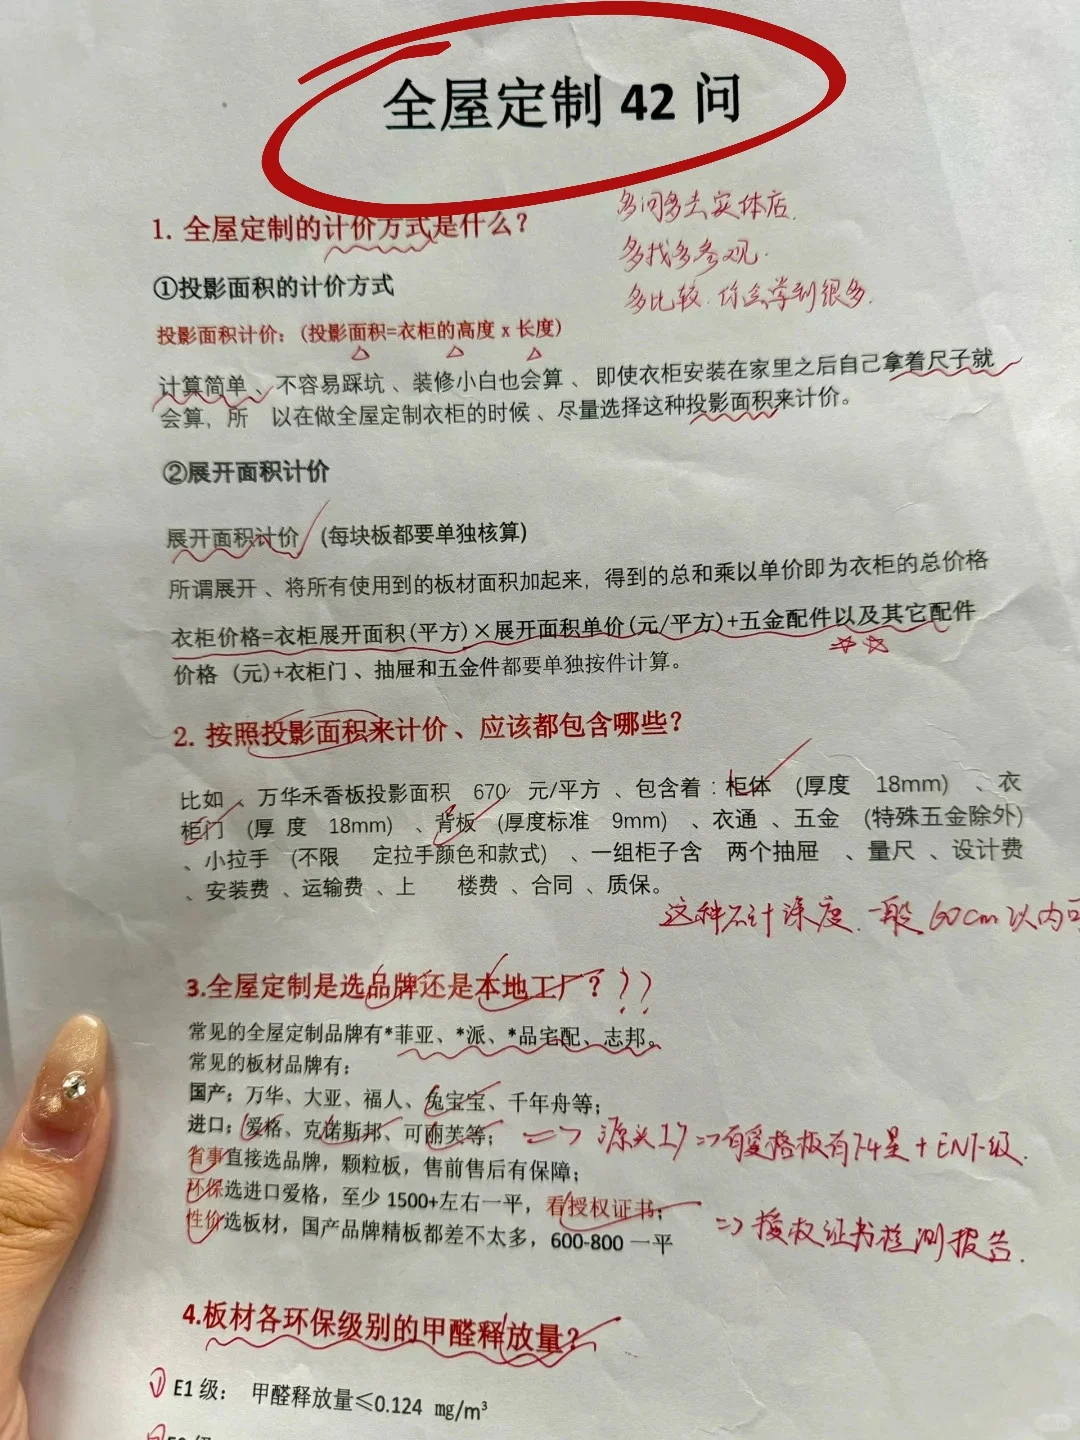 全屋定制 42 问
多问多去实体店.
多找多参观.
多比较.你会学到很多.
1. 全屋定制的计价方式是什么?
①投影面积的计价方式
投影面积计价: (投影面积=衣柜的高度 x 长度)
计算简单 、不容易踩坑 、装修小白也会算 、 即使衣柜安装在家里之后自己拿着尺子就
会算, 所 以在做全屋定制衣柜的时候 、尽量选择这种投影面积来计价。
②展开面积计价
展开面积计价 (每块板都要单独核算)
所谓展开 、将所有使用到的板材面积加起来, 得到的总和乘以单价即为衣柜的总价格
衣柜价格=衣柜展开面积(平方)×展开面积单价(元/平方)+五金配件以及其它配件
价格 (元)+衣柜门 、抽屉和五金件都要单独按件计算。
2. 按照投影面积来计价 、应该都包含哪些?
比如 、万华禾香板投影面积 670 元/平方 、包含着 : 柜体 (厚度 18mm) 、衣
柜门 (厚 度 18mm) 、背板 (厚度标准 9mm) 、衣通 、五金 (特殊五金除外)
、小拉手 (不限 定拉手颜色和款式) 、一组柜子含 两个抽屉 、量尺 、设计费
、安装费 、运输费 、上 楼费 、合同 、质保。
这种不计深度.一般60cm以内
3.全屋定制是选品牌还是本地工厂? ? ?
常见的全屋定制品牌有*菲亚、*派、*品宅配、志邦。
常见的板材品牌有;
国产; 万华、大亚、福人、兔宝宝、千年舟等;
进口; 爱格、克诺斯邦、可丽芙等; => 源头工厂=>有爱格板有F4星+ENF级.
省事直接选品牌, 颗粒板, 售前售后有保障;
环保选进口爱格, 至少 1500+左右一平, 看授权证书;
性价选板材, 国产品牌精板都差不太多, 600-800 一平
=> 授权证书检测报告.
4.板材各环保级别的甲醛释放量?
E1 级: 甲醛释放量≤0.124 mg/m³